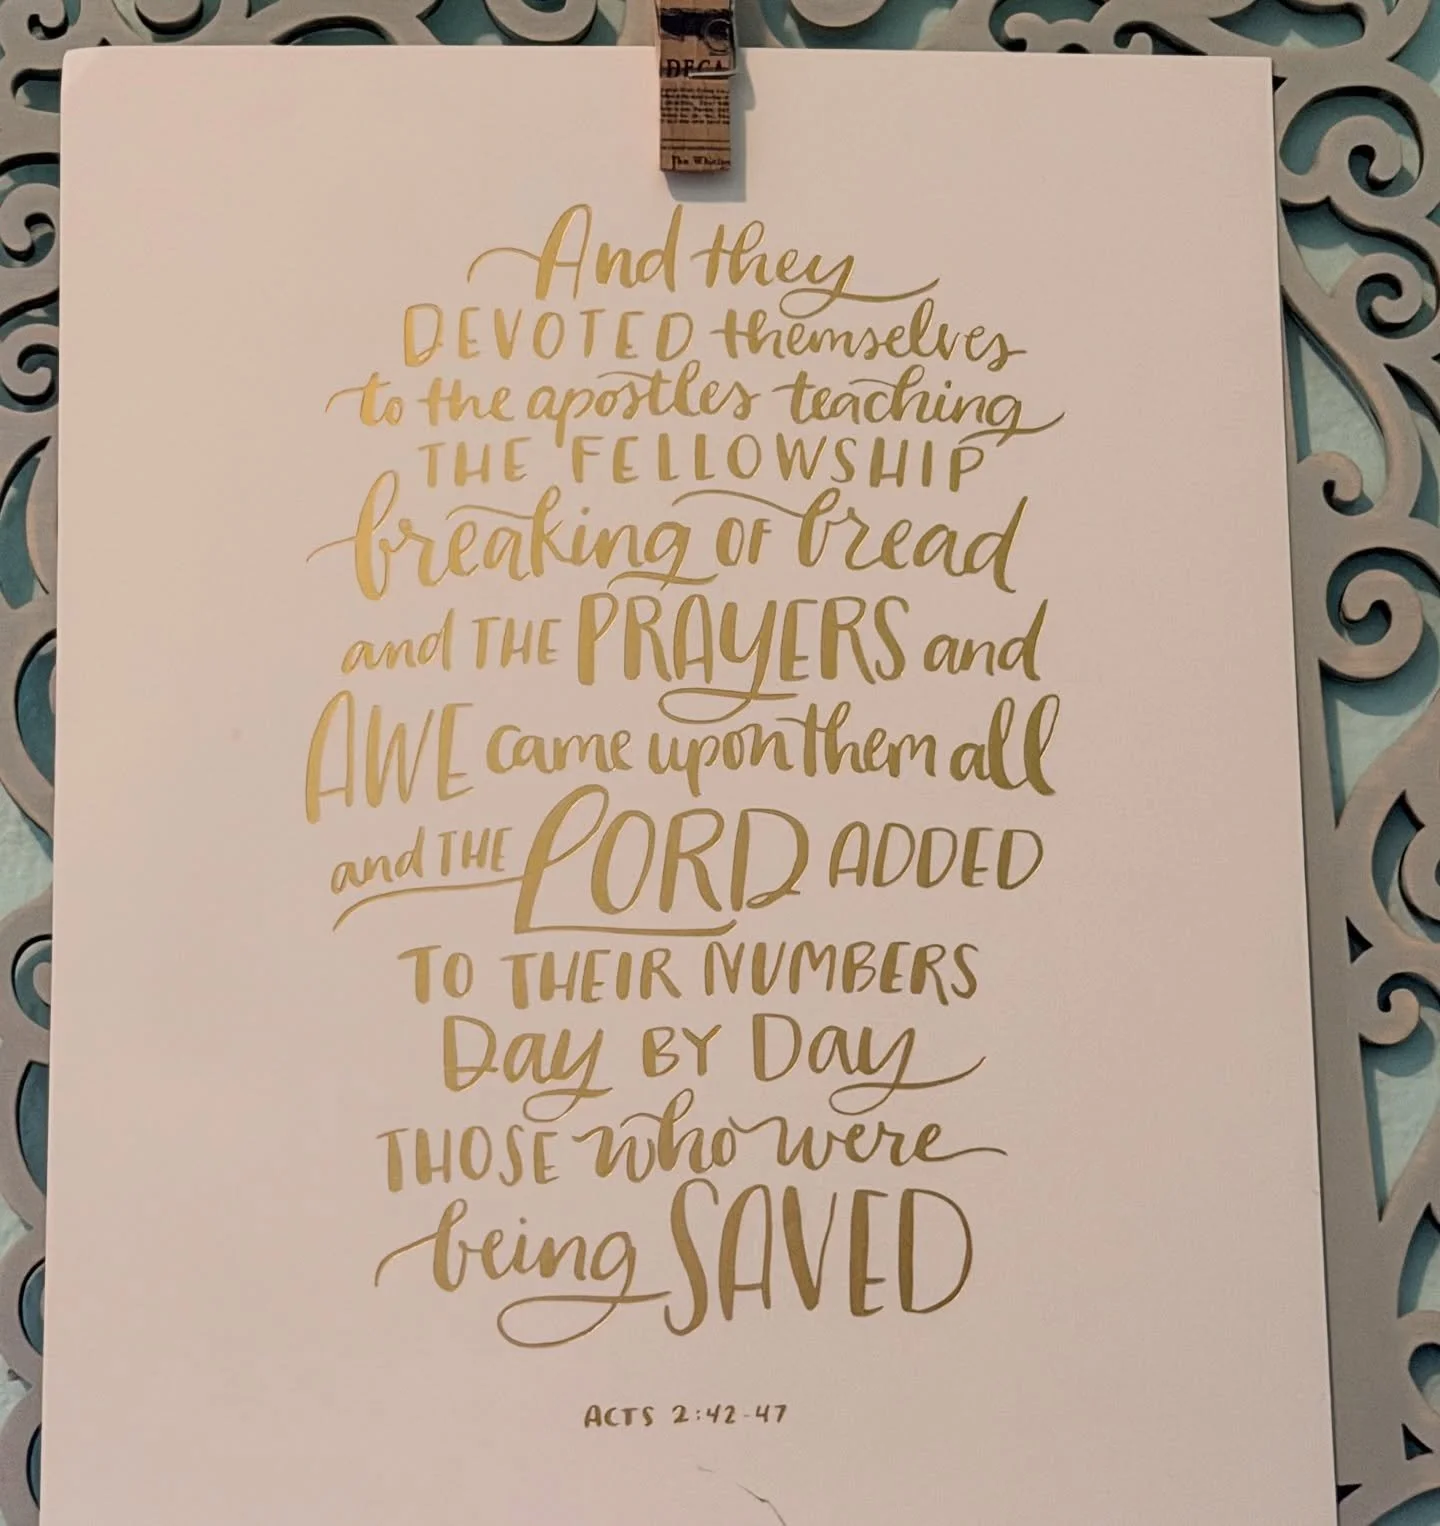 DECA
The Whistler
And they
DEVOTED themselves
to the apostles teaching
THE FELLOWSHIP
breaking OF bread
and THE PRAYERS and
AWE came upon them all
and THE LORD ADDED
TO THEIR NUMBERS
Day BY Day
THOSE who were
being SAVED
ACTS 2:42-47